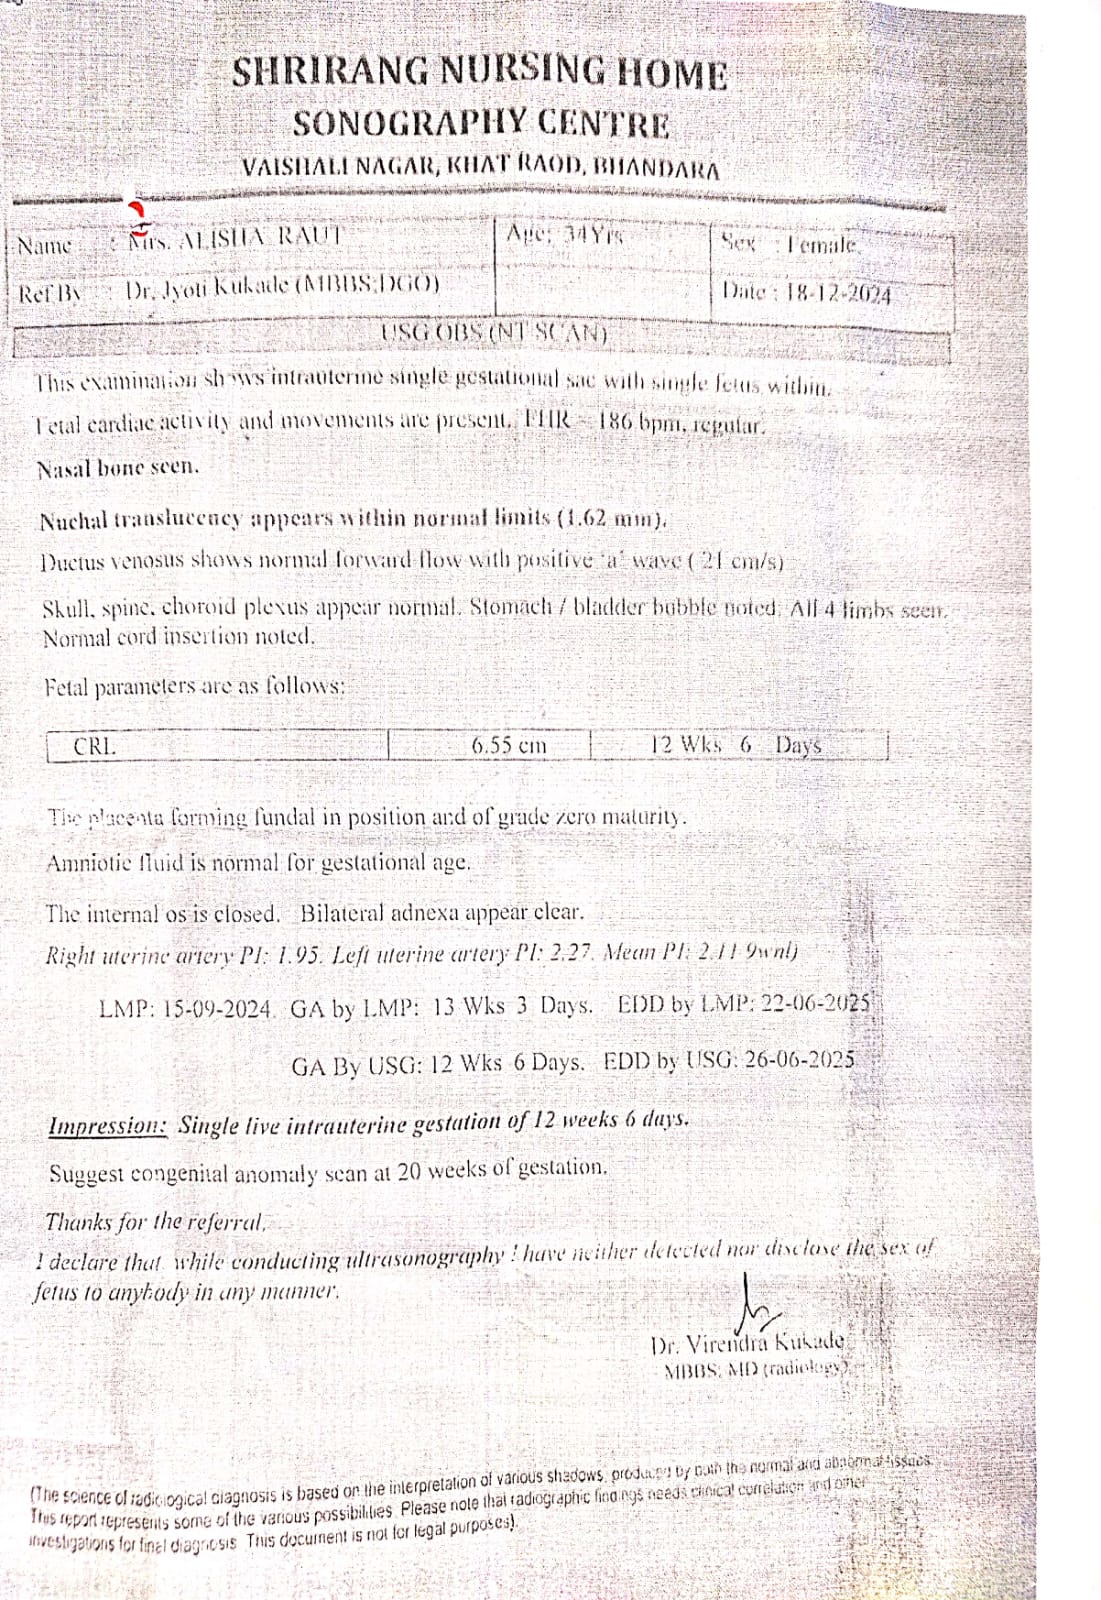 SHRIRANG NURSING HOME
SONOGRAPHY CENTRE
VAISHALI NAGAR, KHAT RAOD, BHANDARA
Name : Mrs. ALISHA RAUT Age: 34Yrs Sex : Female
Ref By : Dr. Jyoti Kukade (MBBS;DGO) Date : 18-12-2024
USG OBS (NT SCAN)
This examination shows intrauterine single gestational sac with single fetus within.
Fetal cardiac activity and movements are present. FHR ~ 186 bpm, regular.
Nasal bone seen.
Nuchal translucency appears within normal limits (1.62 mm).
Ductus venosus shows normal forward flow with positive 'a' wave ( 21 cm/s)
Skull, spine, choroid plexus appear normal. Stomach / bladder bubble noted. All 4 limbs seen.
Normal cord insertion noted.
Fetal parameters are as follows:
CRL 6.55 cm 12 Wks 6 Days
The placenta forming fundal in position and of grade zero maturity.
Amniotic fluid is normal for gestational age.
The internal os is closed. Bilateral adnexa appear clear.
Right uterine artery PI: 1.95. Left uterine artery PI: 2.27. Mean PI: 2.11 9wnl)
LMP: 15-09-2024. GA by LMP: 13 Wks 3 Days. EDD by LMP: 22-06-2025
GA By USG: 12 Wks 6 Days. EDD by USG: 26-06-2025
Impression: Single live intrauterine gestation of 12 weeks 6 days.
Suggest congenital anomaly scan at 20 weeks of gestation.
Thanks for the referral,
I declare that while conducting ultrasonography I have neither detected nor disclose the sex of
fetus to anybody in any manner.
Dr. Virendra Kukade
MBBS; MD (radiology)
(The science of radiological diagnosis is based on the interpretation of various shadows, produced by both the normal and abnormal tissues.
This report represents some of the various possibilities. Please note that radiographic findings needs clinical correlation and other
investigations for final diagnosis. This document is not for legal purposes).